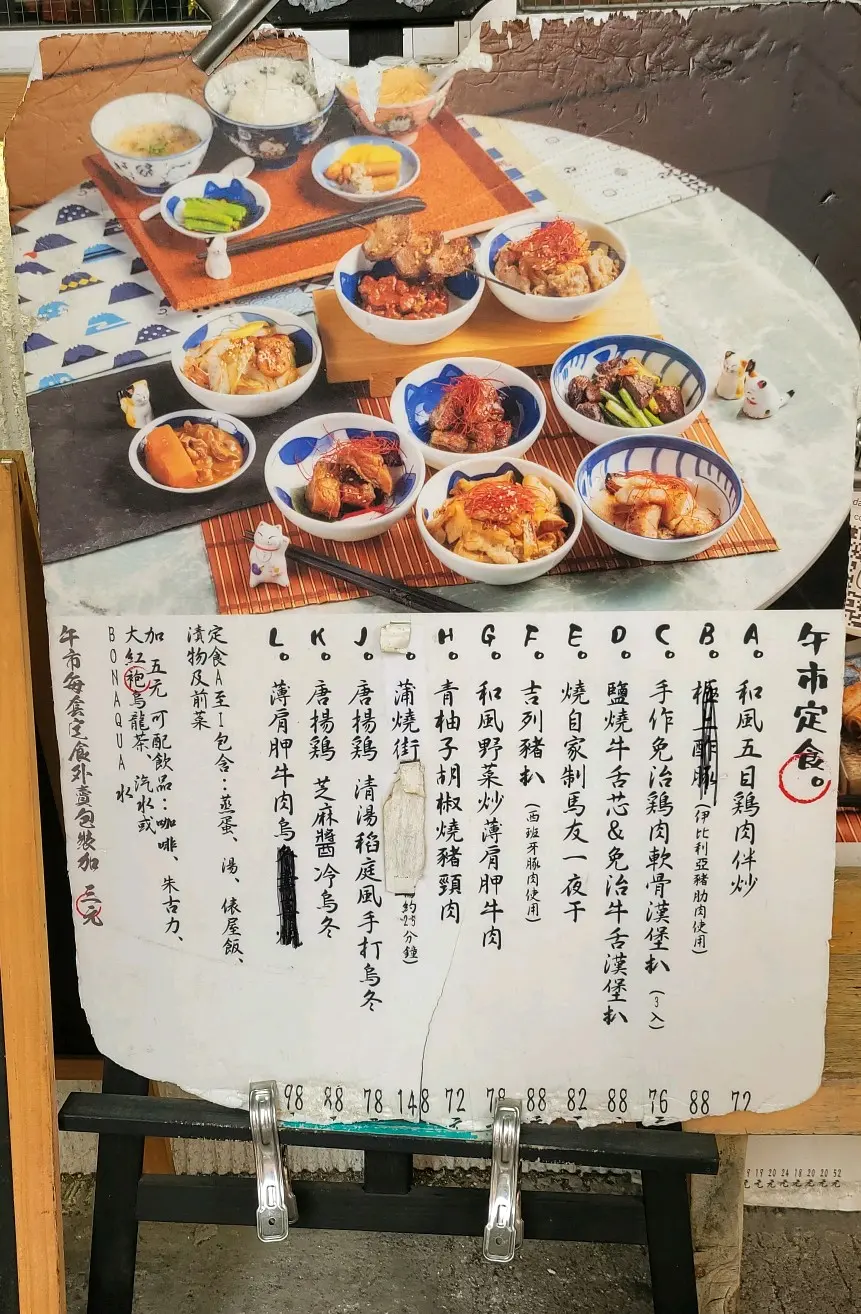 午市定食。
A。 和風五目鷄肉伴炒 72
B。 (伊比利亞豬肋肉使用) 88
C。 手作免治鷄肉軟骨漢堡扒 (3入) 76
D。 鹽燒牛舌芯&免治牛舌漢堡扒 88
E。 燒自家制馬友一夜干 82
F。 吉列豬扒 (西班牙豚肉使用) 88
G。 和風野菜炒薄肩胛牛肉 78
H。 青柚子胡椒燒豬頸肉 72
。 蒲燒 約25分鐘) 148
J。 唐揚鷄 清湯稻庭風手打烏冬 78
K。 唐揚鷄 芝麻醬冷烏冬 88
L。 薄肩胛牛肉烏 98
定食A至I包含：蒸蛋、湯、俵屋飯、
漬物及前菜
加五元 可配飲品：咖啡、朱古力、
大紅袍烏龍茶、汽水或
BONAQUA 水
午市每套定食外賣包裝加 三元
9 19 20 24 18 20 20 52
元 元 元 元 元 元 元